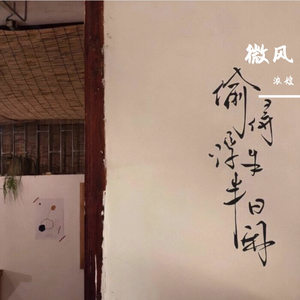 微风
浓煌
偷得浮生半日闲